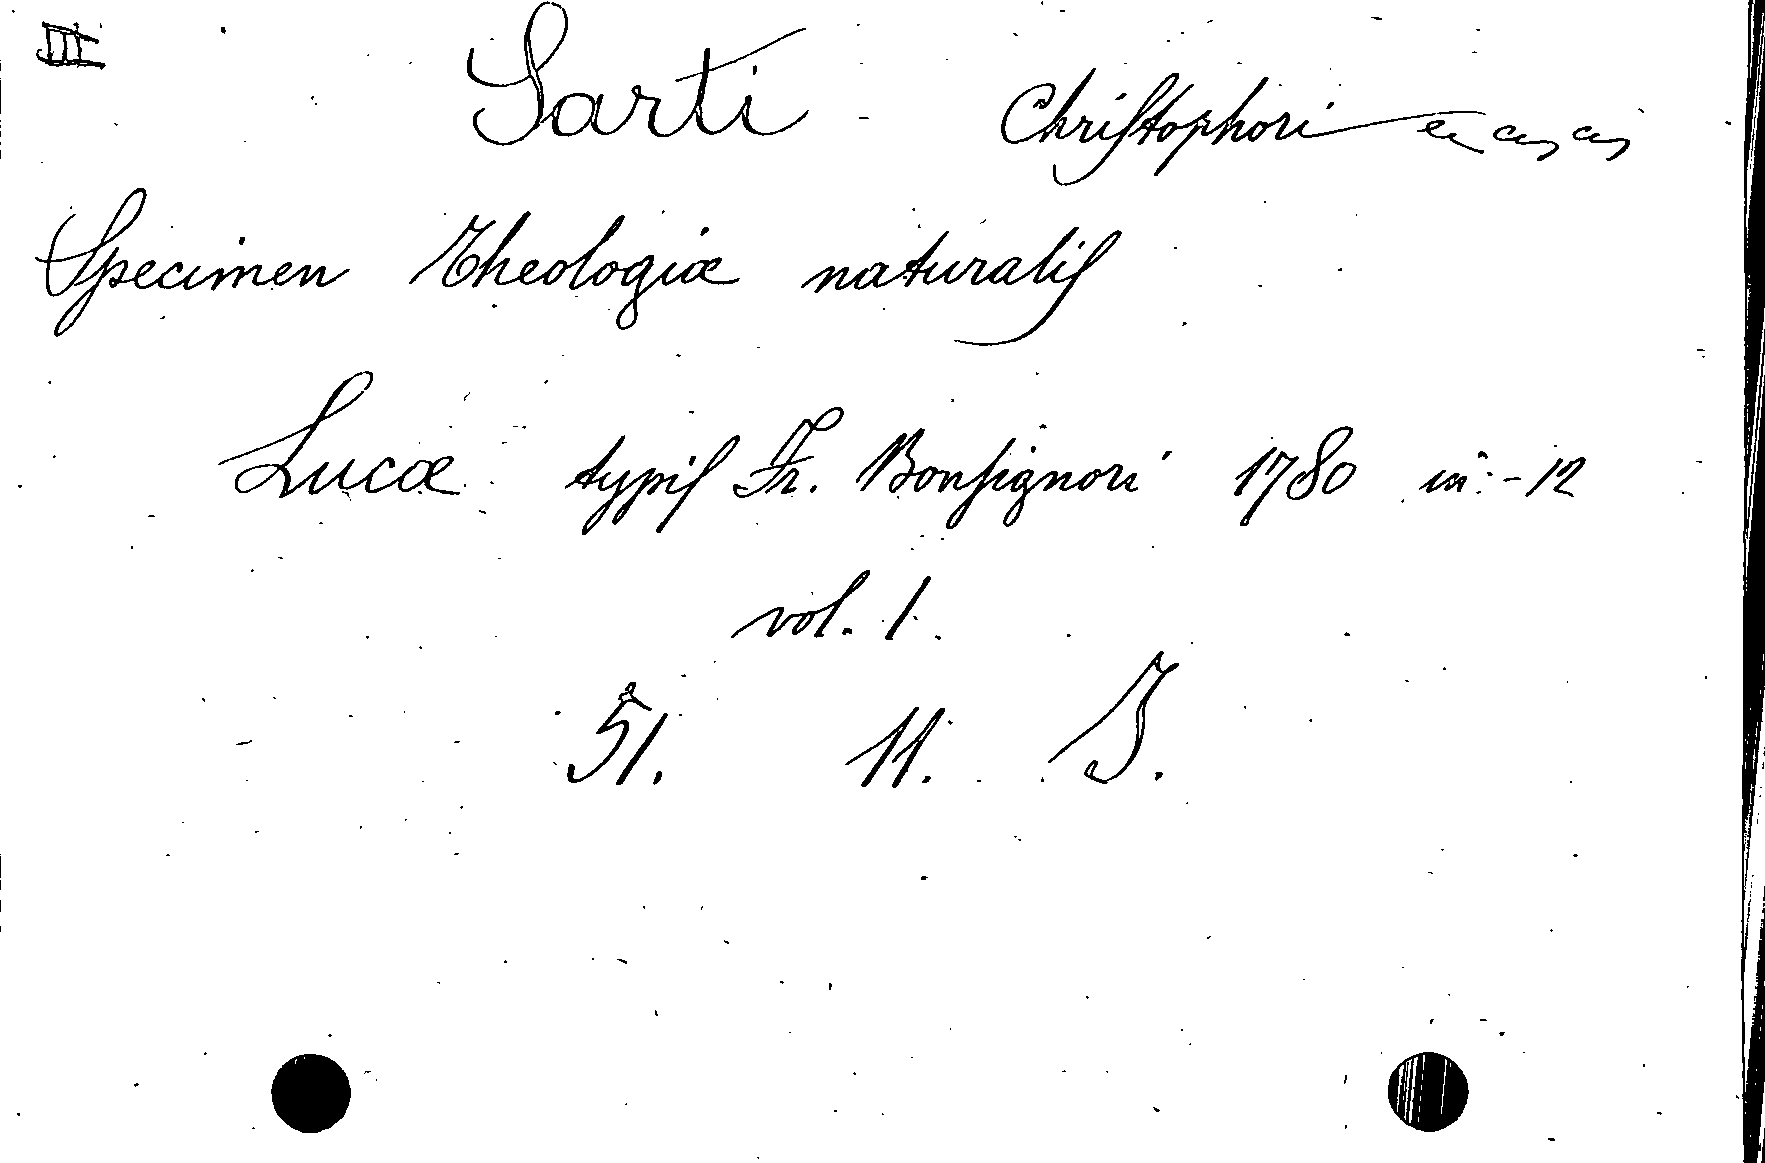 III
Sarti Christophori
Specimen Theologiæ naturalis
Lucæ typis Fr. Bonsignori 1780 in-12
vol. 1.
51. 11. J.